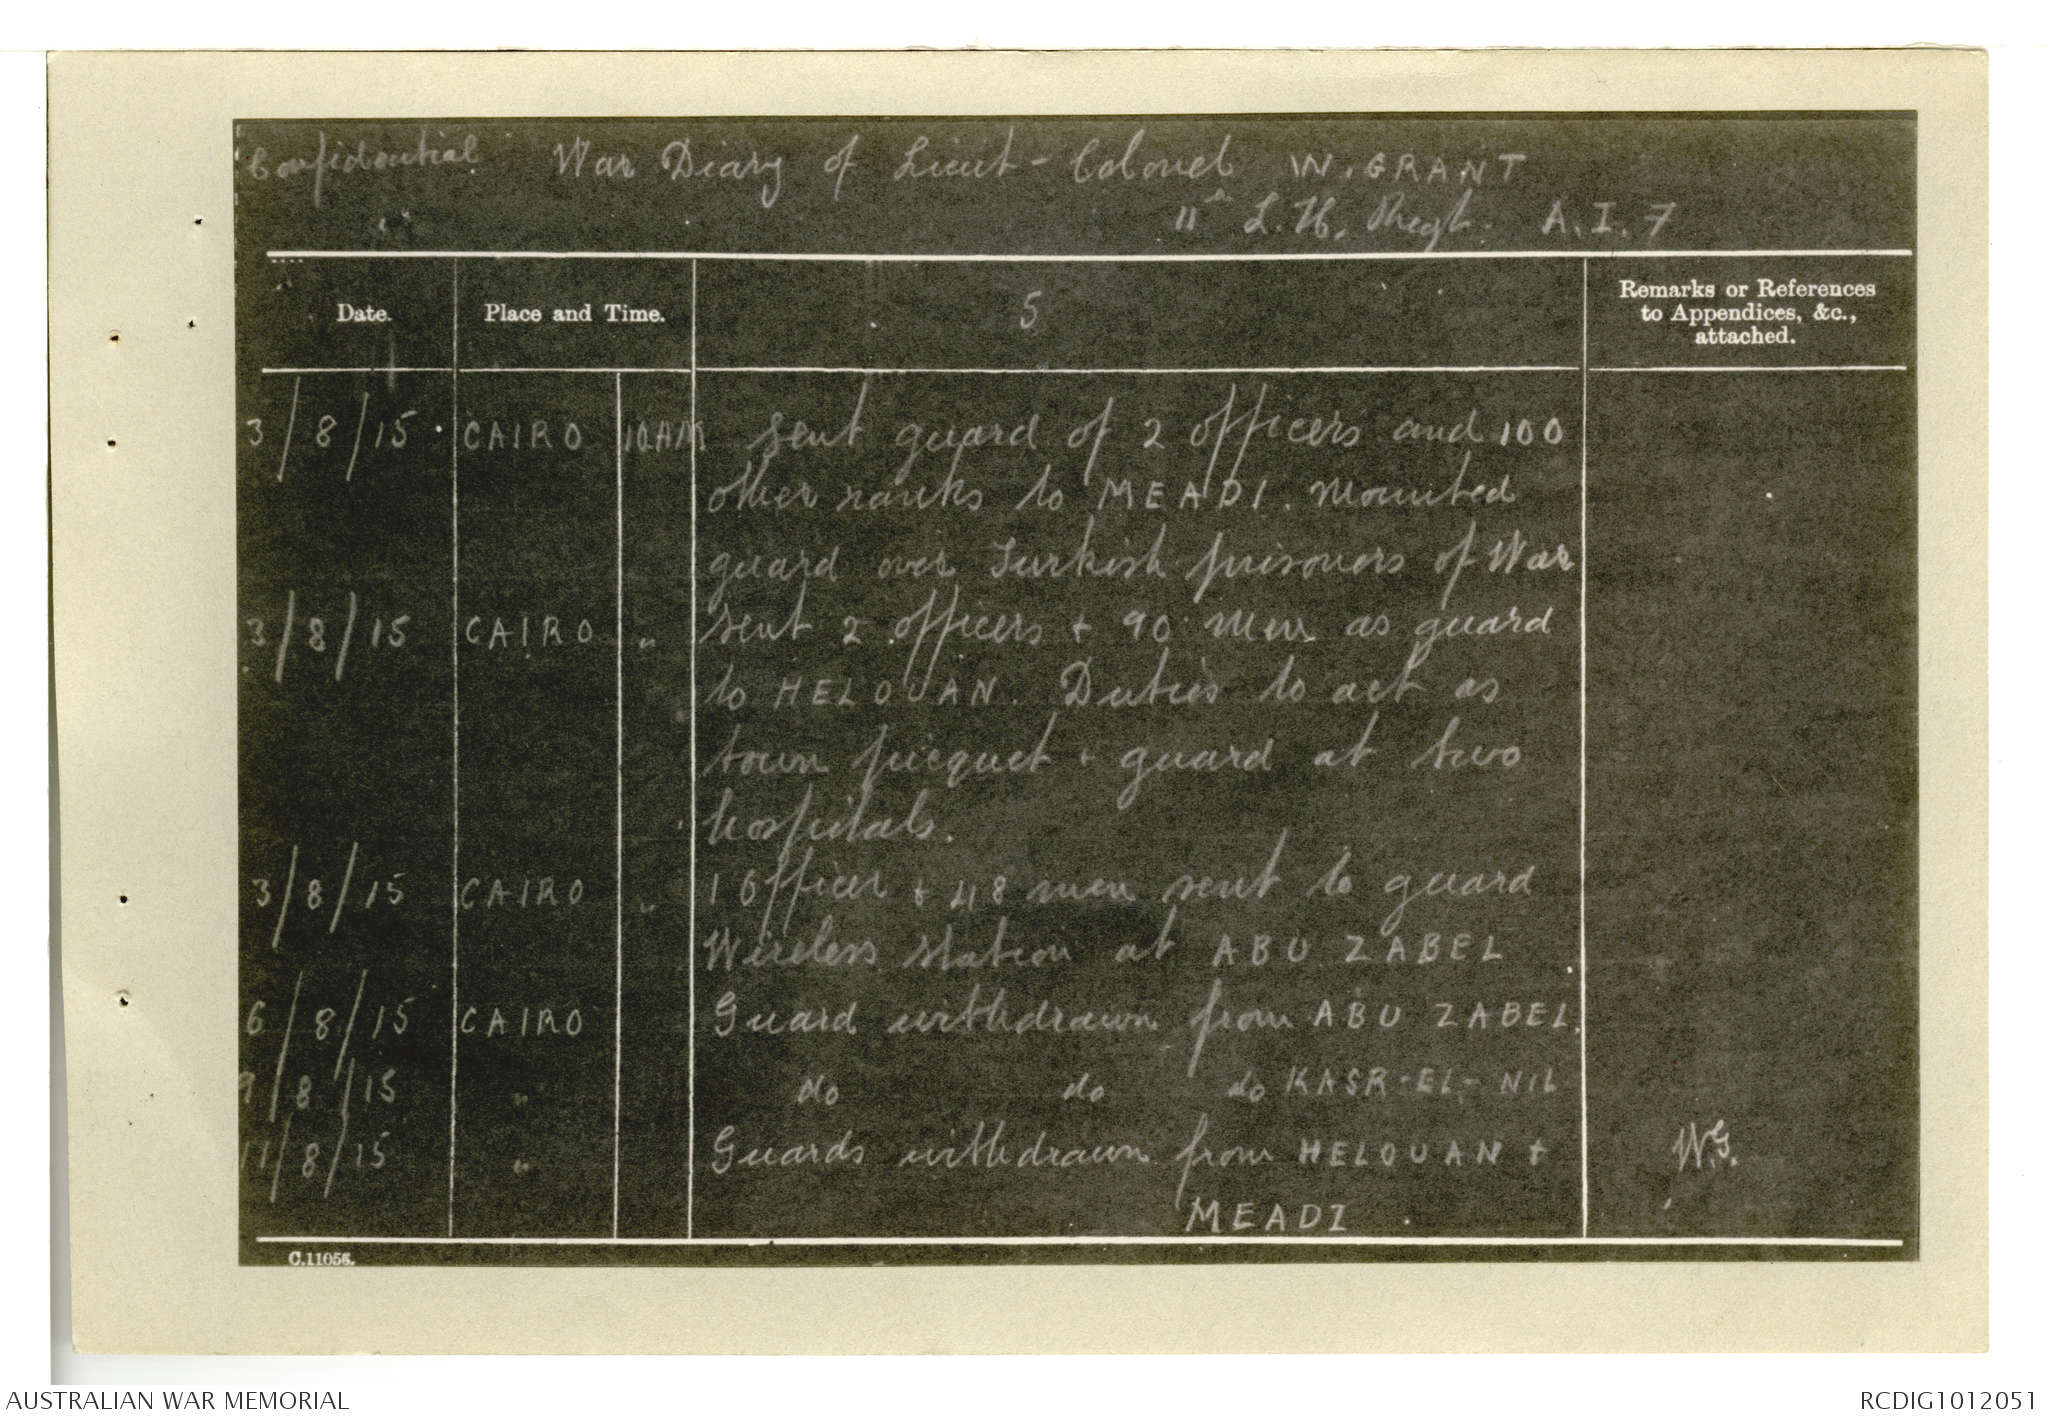 Confidential War Diary of Lieut-Colonel W. GRANT
11th L.H. Regt. A.I.F
Date. Place and Time. 5 Remarks or References
to Appendices, &c.,
attached.
3/8/15 CAIRO 10AM Sent guard of 2 officers and 100
other ranks to MEADI. Mounted
guard over Turkish prisoners of War
3/8/15 CAIRO " Sent 2 officers + 90 men as guard
to HELOUAN. Duties to act as
town picquet + guard at two
hospitals.
3/8/15 CAIRO " 1 Officer + 48 men sent to guard
Wireless station at ABU ZABEL
6/8/15 CAIRO Guard withdrawn from ABU ZABEL.
9/8/15 " do do do KASR-EL-NIL
11/8/15 " Guards withdrawn from HELOUAN + W.G.
MEADI.
C.11056.
AUSTRALIAN WAR MEMORIAL RCDIG1012051